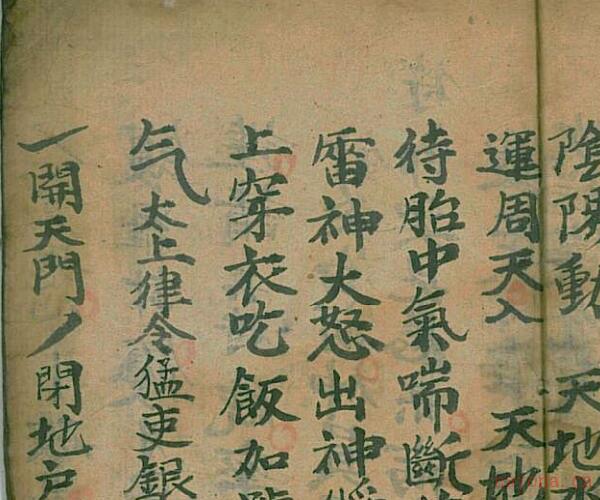 陰陽動 天地
運周天入 天地
待胎中氣喘斷
雷神大怒出神
上穿衣吃飯加
气太上律令猛吏銀
一開天門丿閉地户